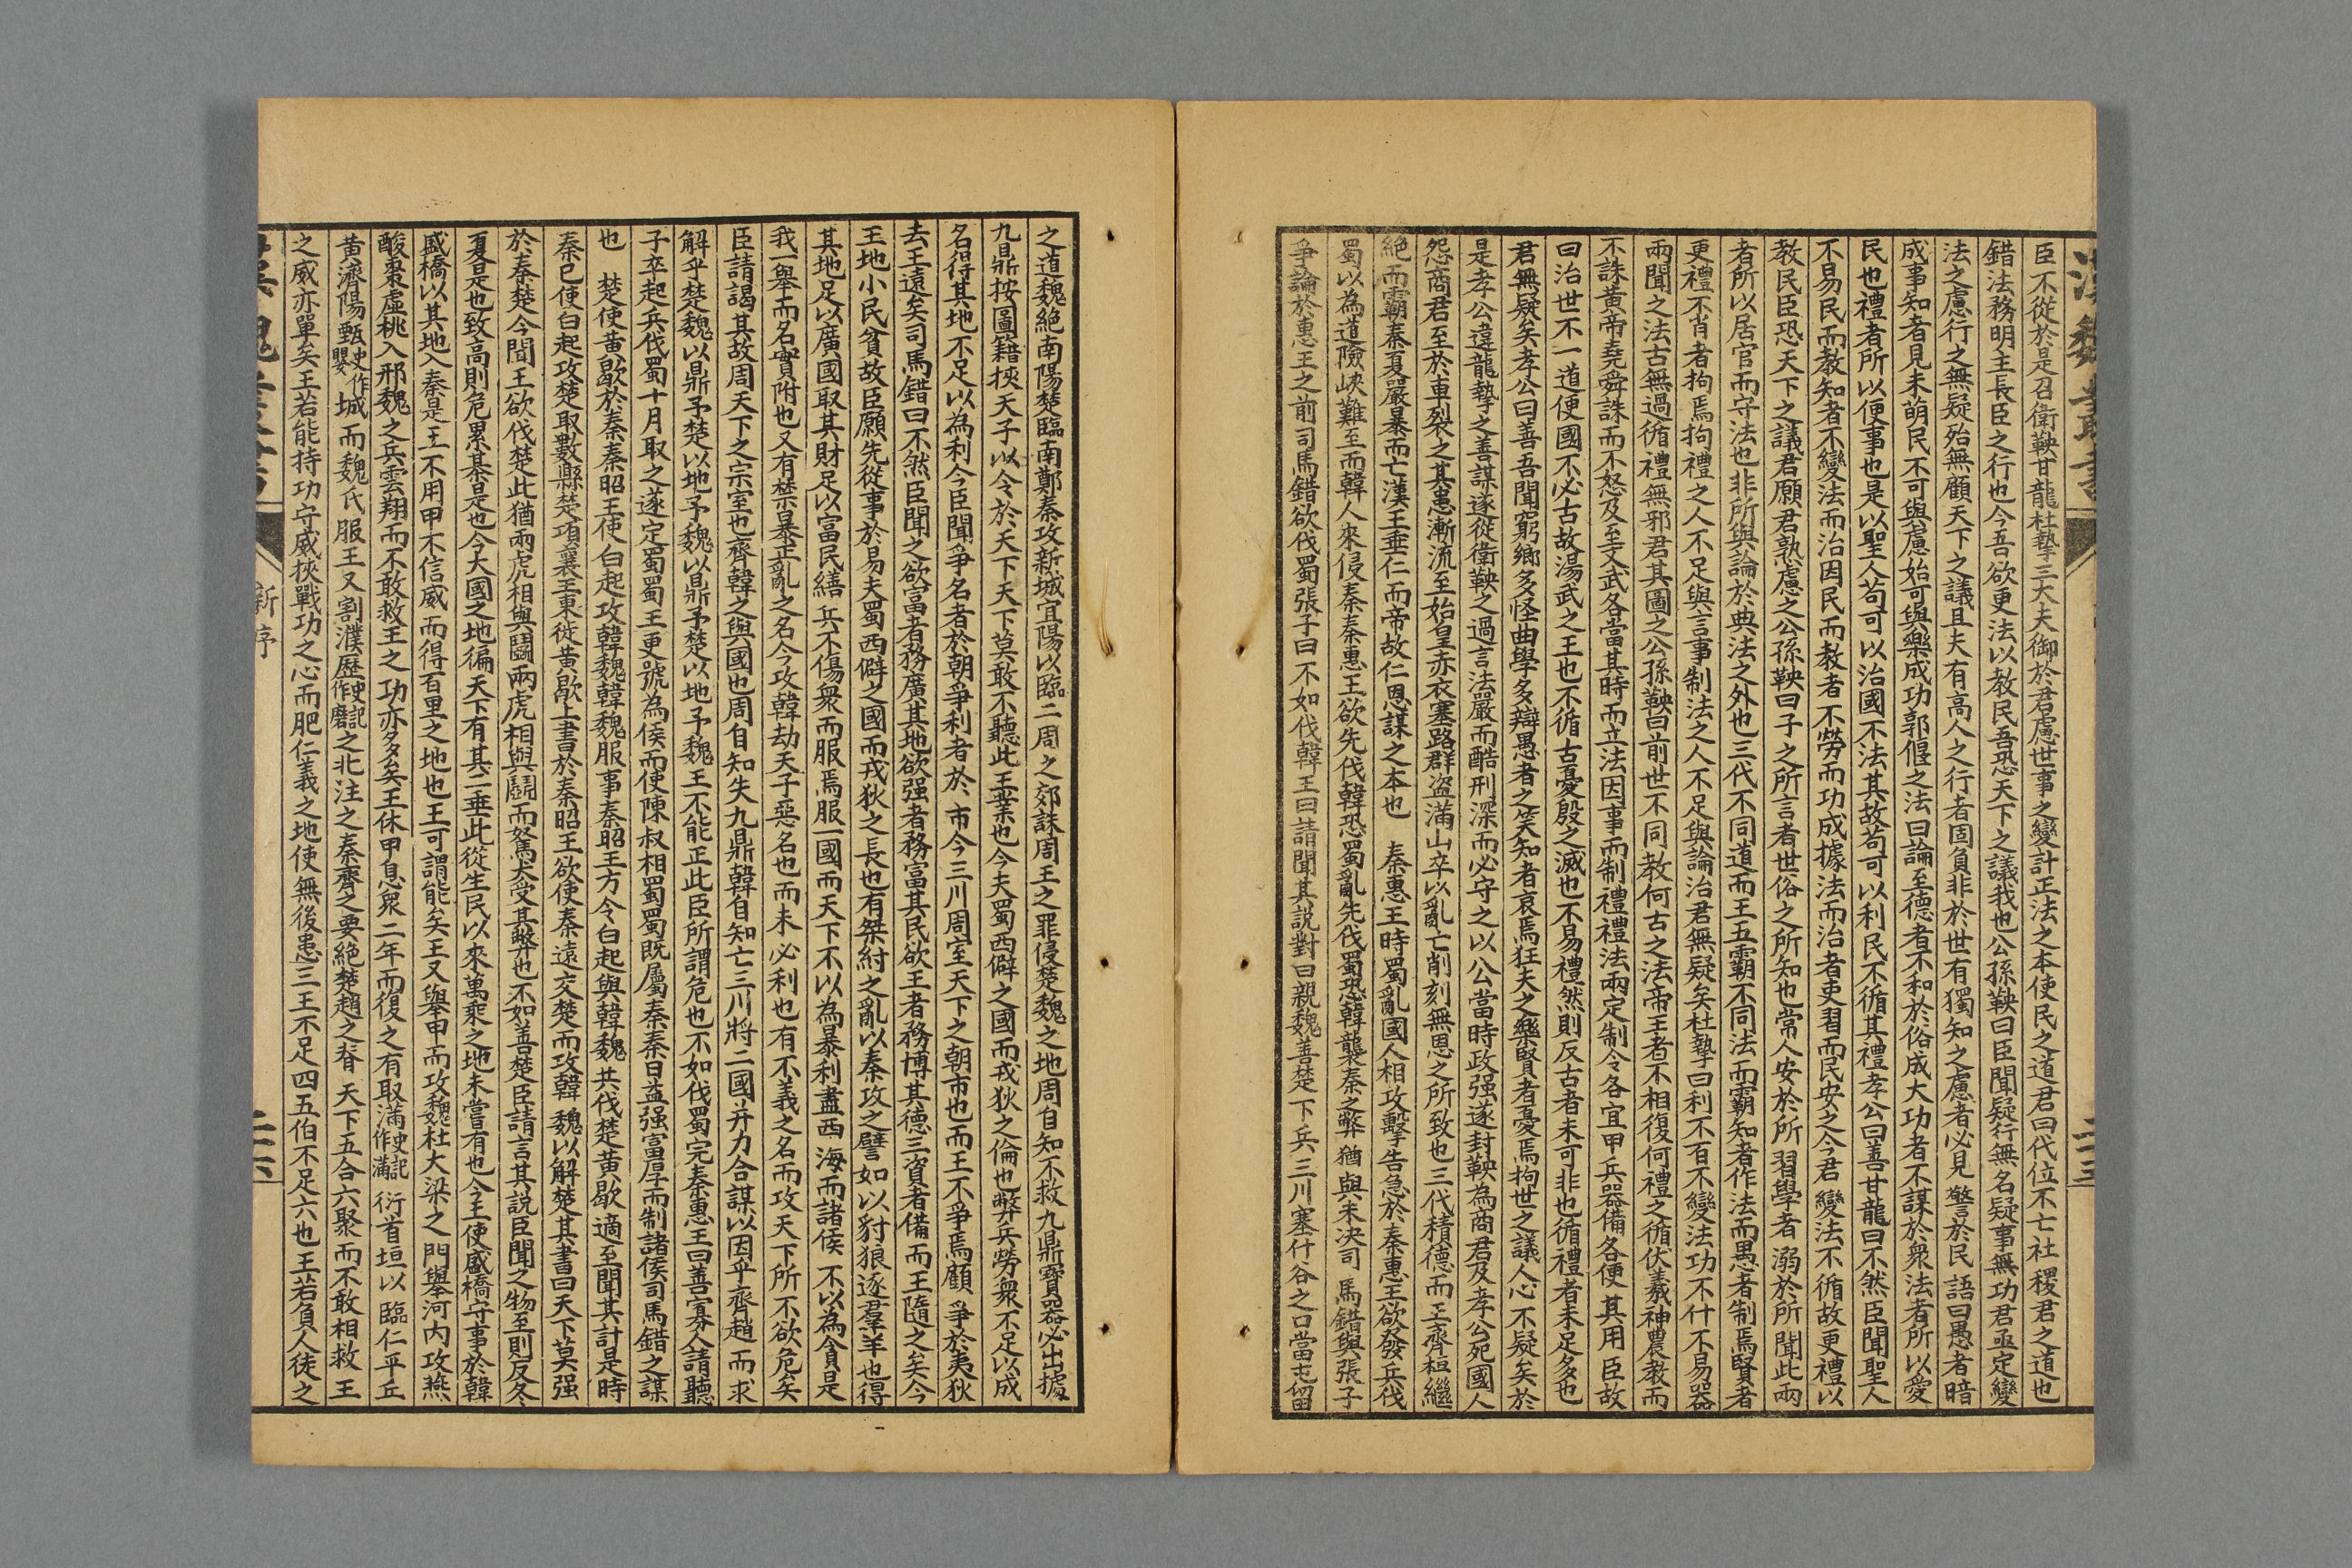 臣不從於是召衛鞅甘龍杜摯三大夫御於君慮世事之變計正法之本使民之道君曰代位不亡社稷君之道也
錯法務明主長臣之行也今吾欲更法以教民吾恐天下之議我也公孫鞅曰臣聞疑行無名疑事無功君亟定變
法之慮行之無疑殆無顧天下之議且夫有高人之行者固負非於世有獨知之慮者必見警於民語曰愚者暗
成事知者見未萌民不可與慮始可與樂成功郭偃之法曰論至德者不和於俗成大功者不謀於衆法者所以愛
民也禮者所以便事也是以聖人苟可以治國不法其故苟可以利民不循其禮孝公曰善甘龍曰不然臣聞聖人
不易民而教知者不變法而治因民而教者不勞而功成據法而治者吏習而民安之今君變法不循故更禮以
教民臣恐天下之議君願君熟慮之公孫鞅曰子之所言者世俗之所知也常人安於所習學者溺於所聞此兩
者所以居官而守法也非所與論於典法之外也三代不同道而王五霸不同法而霸知者作法而愚者制焉賢者
更禮不肖者拘焉拘禮之人不足與言事制法之人不足與論治君無疑矣杜摯曰利不百不變法功不什不易器
兩聞之法古無過循禮無邪君其圖之公孫鞅曰前世不同教何古之法帝王者不相復何禮之循伏羲神農教而
不誅黃帝堯舜誅而不怒及至文武各當其時而立法因事而制禮禮法兩定制令各宜甲兵器備各便其用臣故
曰治世不一道便國不必古故湯武之王也不循古憂殷之滅也不易禮然則反古者未可非也循禮者未足多也
君無疑矣孝公曰善吾聞窮鄉多怪曲學多辯愚者之笑知者哀焉狂夫之樂賢者憂焉拘世之議人心不疑矣於
是孝公違龍摯之善謀遂從衛鞅之過言法嚴而酷刑深而必守之以公當時政强遂封鞅為商君及孝公死國人
怨商君至於車裂之其患漸流至始皇赤衣塞路群盜滿山卒以亂亡削刻無恩之所致也三代積德而王齊桓繼
絕而霸秦夏嚴暴而亡漢王垂仁而帝故仁恩謀之本也　秦惠王時蜀亂國人相攻擊告急於秦惠王欲發兵伐
蜀以為道險峽難至而韓人來侵秦秦惠王欲先伐韓恐蜀亂先伐蜀恐韓襲秦之弊猶與未決司馬錯與張子
爭論於惠王之前司馬錯欲伐蜀張子曰不如伐韓王曰請聞其説對曰親魏善楚下兵三川塞什谷之口當屯留
之道魏絕南陽楚臨南鄭秦攻新城宜陽以臨二周之郊誅周王之罪侵楚魏之地周自知不救九鼎寶器必出據
九鼎按圖籍挾天子以令於天下天下莫敢不聽此王業也今夫蜀西僻之國而戎狄之倫也弊兵勞衆不足以成
名得其地不足以為利今臣聞爭名者於朝爭利者於市今三川周室天下之朝市也而王不爭焉顧爭於夷狄
去王遠矣司馬錯曰不然臣聞之欲富者務廣其地欲强者務富其民欲王者務博其德三資者備而王隨之矣今
王地小民貧故臣願先從事於易夫蜀西僻之國而戎狄之長也有桀紂之亂以秦攻之譬如以豺狼逐羣羊也得
其地足以廣國取其財足以富民繕兵不傷衆而服焉服一國而天下不以為暴利盡西海而諸侯不以為貪是
我一舉而名實附也又有禁暴正亂之名今攻韓劫天子惡名也而未必利也有不義之名而攻天下所不欲危矣
臣請謁其故周天下之宗室也齊韓之與國也周自知失九鼎韓自知亡三川將二國并力合謀以因乎齊趙而求
解乎楚魏以鼎予楚以地予魏以鼎予楚以地予魏王不能正此臣所謂危也不如伐蜀完秦惠王曰善寡人請聽
子卒起兵伐蜀十月取之遂定蜀蜀王更號為侯而使陳叔相蜀蜀既屬秦秦日益强富厚而制諸侯司馬錯之謀
也　楚使黃歇於秦秦昭王使白起攻韓魏韓魏服事秦昭王方令白起與韓魏共伐楚黃歇適至聞其計是時
秦已使白起攻楚取數縣楚頃襄王東徙黃歇上書於秦昭王欲使秦遠交楚而攻韓魏以解楚其書曰天下莫强
於秦楚今聞王欲伐楚此猶兩虎相與鬭兩虎相與鬭而駑犬受其弊也不如善楚臣請言其説臣聞之物至則反冬
夏是也致高則危累棊是也今大國之地徧天下有其二垂此從生民以來萬乘之地未嘗有也今王使盛橋守事於韓
盛橋以其地入秦是王不用甲不信威而得百里之地也王可謂能矣王又舉甲而攻魏杜大梁之門舉河內攻燕
酸棗虛桃入邢魏之兵雲翔而不敢救王之功亦多矣王休甲息衆二年而復之有取滿史記作蒲衍首垣以臨仁平丘
黃濟陽甄史作嬰城而魏氏服王又割濮歷史記作磨之北注之秦齊之要絕楚趙之脊天下五合六聚而不敢相救王
之威亦單矣王若能持功守威挾戰功之心而肥仁義之地使無後患三王不足四五伯不足六也王若負人徒之
新序